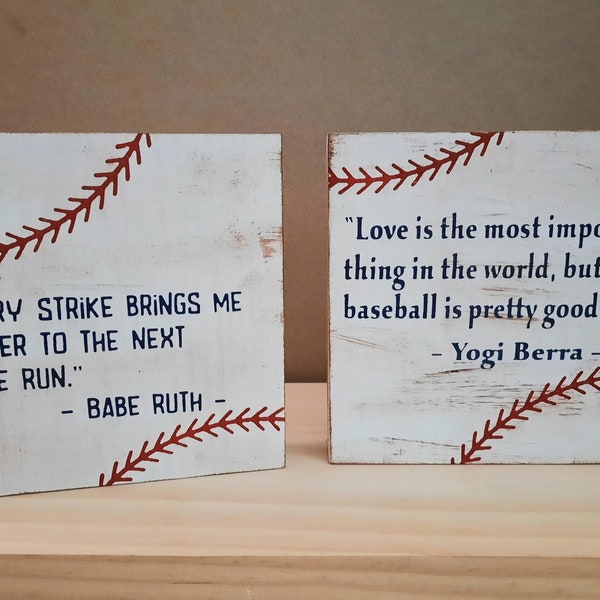 RY STRIKE BRINGS ME
ER TO THE NEXT
E RUN."
- BABE RUTH -
"Love is the most impo
thing in the world, but
baseball is pretty good
- Yogi Berra -